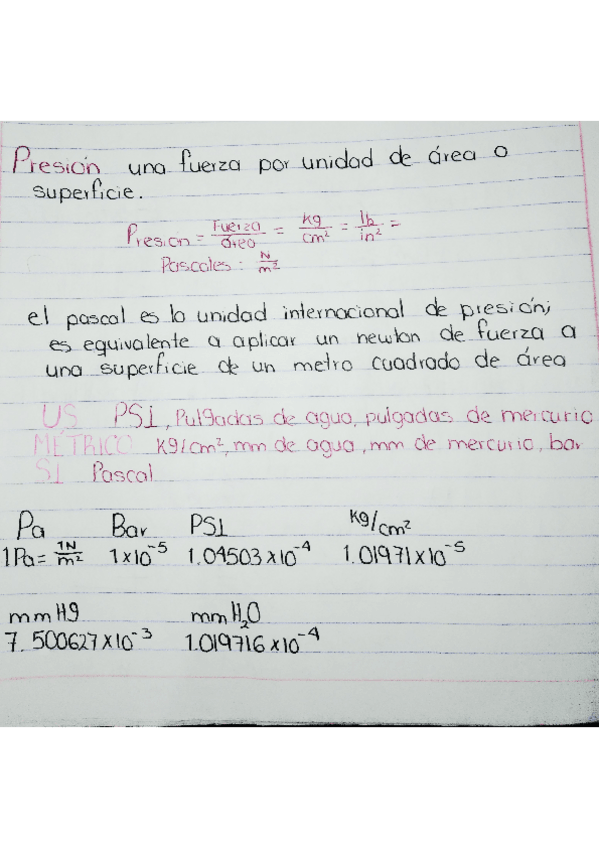 Presión una fuerza por unidad de área o
superficie.
Presion = Fuerza/área = kg/cm² = lb/in² =
Pascales: N/m²
el pascal es la unidad internacional de presión;
es equivalente a aplicar un newton de fuerza a
una superficie de un metro cuadrado de área
US PSI, Pulgadas de agua, pulgadas de mercurio
METRICO Kg/cm², mm de agua, mm de mercurio, bar
SI Pascal
Pa Bar PSI kg/cm²
1Pa = 1N/m² 1x10⁻⁵ 1.04503x10⁻⁴ 1.01971x10⁻⁵
mmHg mmH₂O
7.500627x10⁻³ 1.019716x10⁻⁴